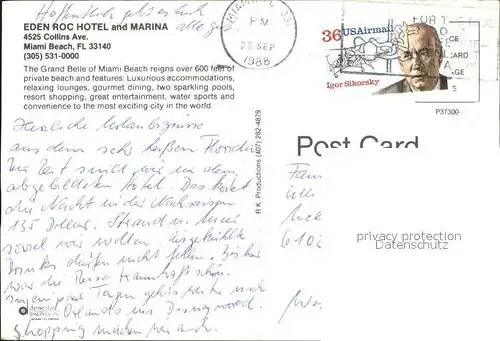 Hoffentlich geht es Euch
allen gut
EDEN ROC HOTEL and MARINA
4525 Collins Ave.
Miami Beach, FL 33140
(305) 531-0000
The Grand Belle of Miami Beach reigns over 600 feet of
private beach and features: Luxurious accommodations,
relaxing lounges, gourmet dining, two sparkling pools,
resort shopping, great entertainment, water sports and
convenience to the most exciting city in the world.
Herzliche Urlaubsgrüsse
aus dem sehr heißen Florida
Zur Zeit sind wir in dem
abgebildeten Hotel. Das kostet
die Nacht in der Nachsaison
135 Dollar. Strand u. Meer
soviel wir wollen, eisgekühlte
Drinks dürfen nicht fehlen. Bisher
war die Reise traumhaft schön.
In ein paar Tagen geht's weiter nach
Orlando ins Disneyworld.
Shopping machen wir auch.
R.K. Productions (407) 282-4879
MIAMI, FL 331
PM
28 SEP
1988
36 USAirmail
Igor Sikorsky
FOR
CE
CARD
AGE
P37300
Post Card
Fam
610
privacy protection
Datenschutz